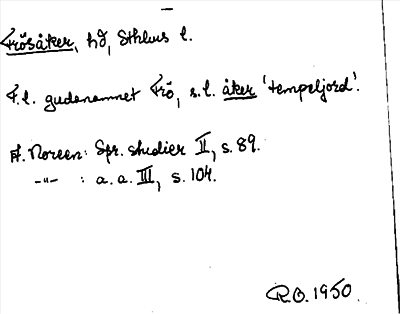 Frösåker, hd, Sthlms l.
F.l. gudanamnet Frö, s.l. åker 'tempeljord'.
A. Noreen: Spr. studier II, s. 89.
-"- : a.a. III, s. 104.
R.O. 1950.